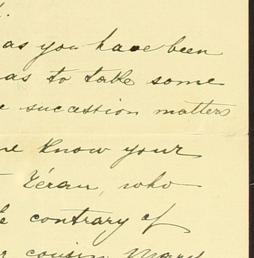 as you have been
as to take some
succession matters
me know your
Téran, who
contrary of
cousin Mary